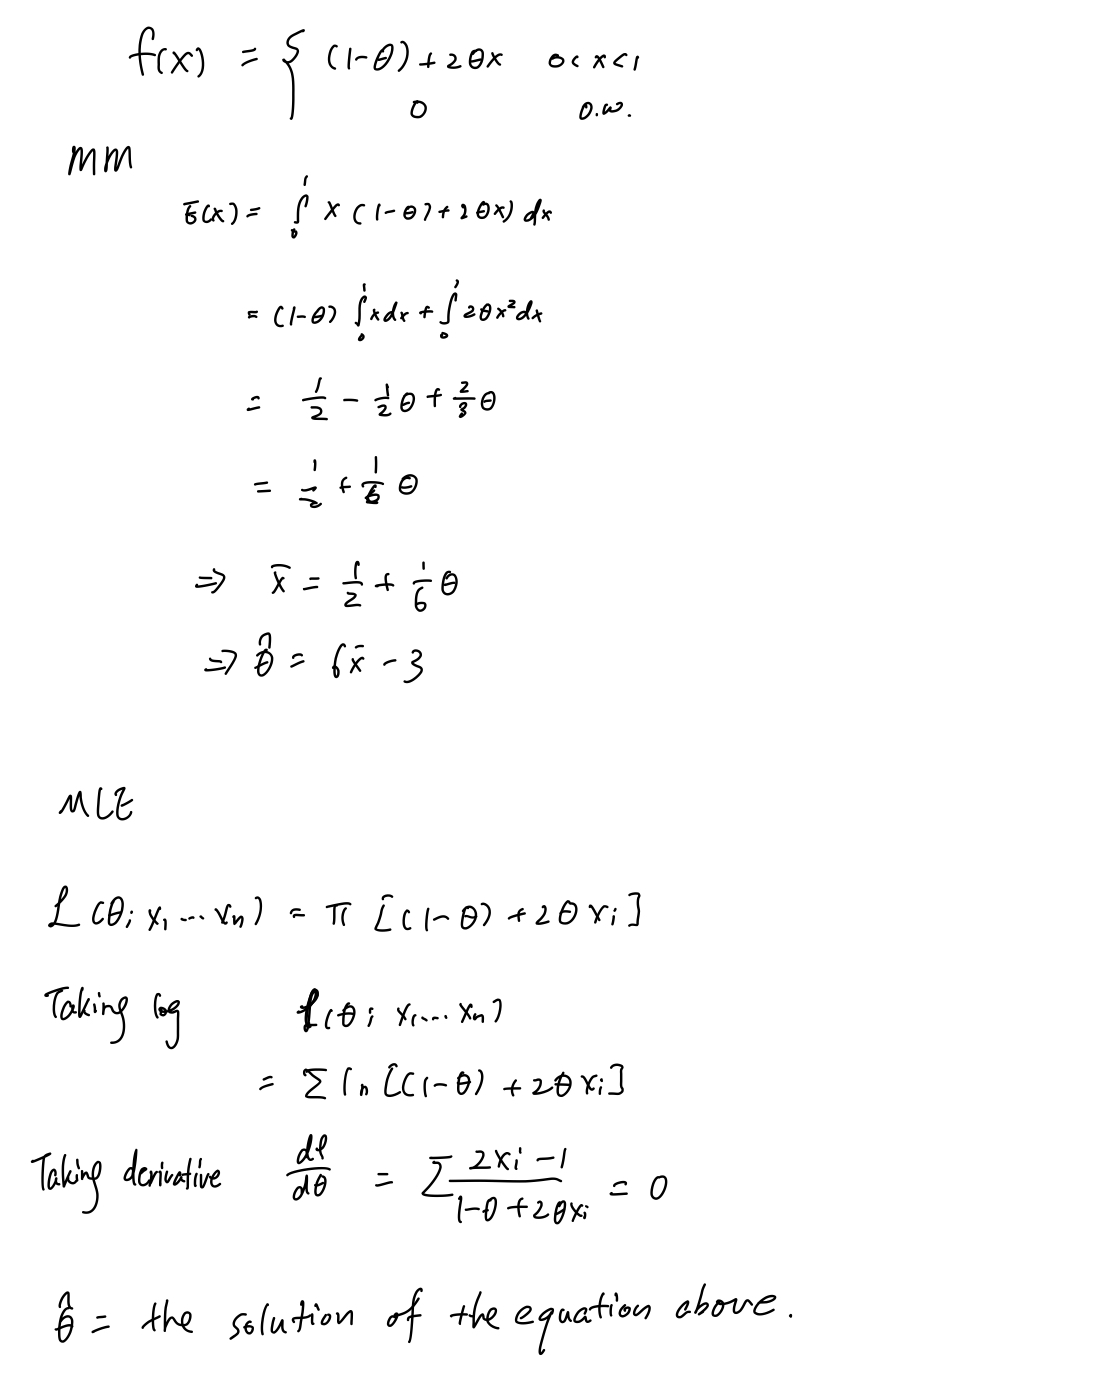 f(x) = { (1-θ) + 2θx 0 < x < 1
0 o.w.
MM
E(x) = ∫₀¹ x (1-θ) + 2θx) dx
= (1-θ) ∫₀¹ x dx + ∫₀¹ 2θx² dx
= 1/2 - 1/2 θ + 2/3 θ
= 1/2 + 1/6 θ
⇒ x̄ = 1/2 + 1/6 θ
⇒ θ̂ = 6x̄ - 3
MLE
L(θ; x₁ ... xₙ) = π [(1-θ) + 2θxᵢ]
Taking log ℓ(θ; x₁ ... xₙ)
= Σ ln [(1-θ) + 2θxᵢ]
Taking derivative dℓ/dθ = Σ (2xᵢ - 1)/(1-θ+2θxᵢ) = 0
θ̂ = the solution of the equation above.